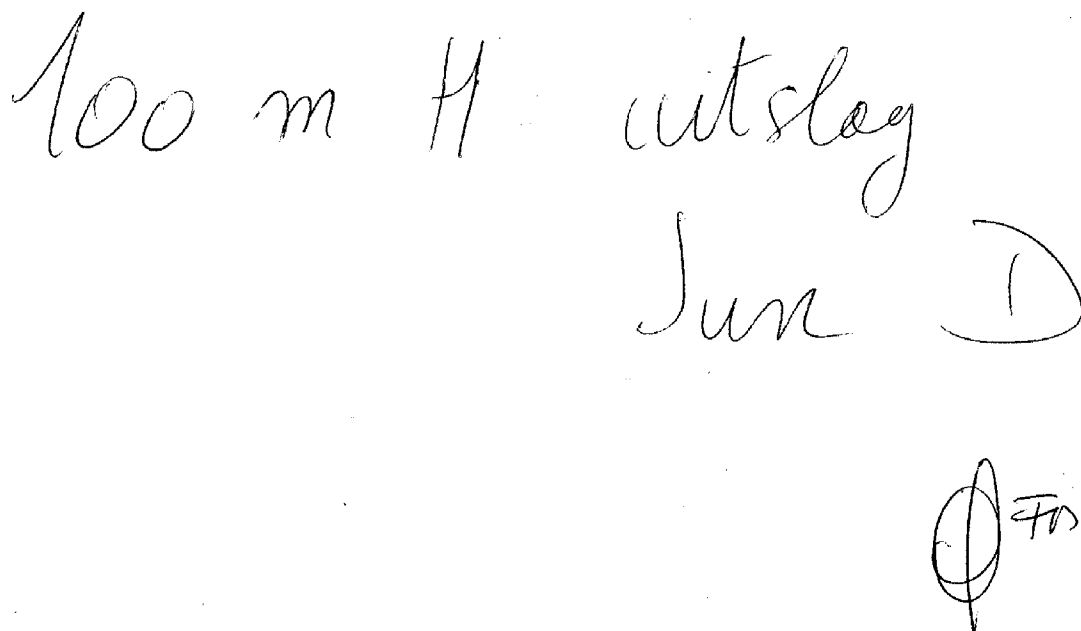 100 m H uitslag
Jun D